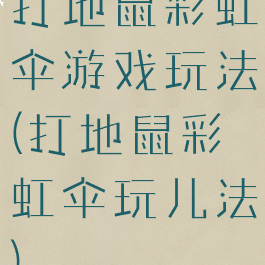 打地鼠彩虹
伞游戏玩法
(打地鼠彩
虹伞玩儿法
)